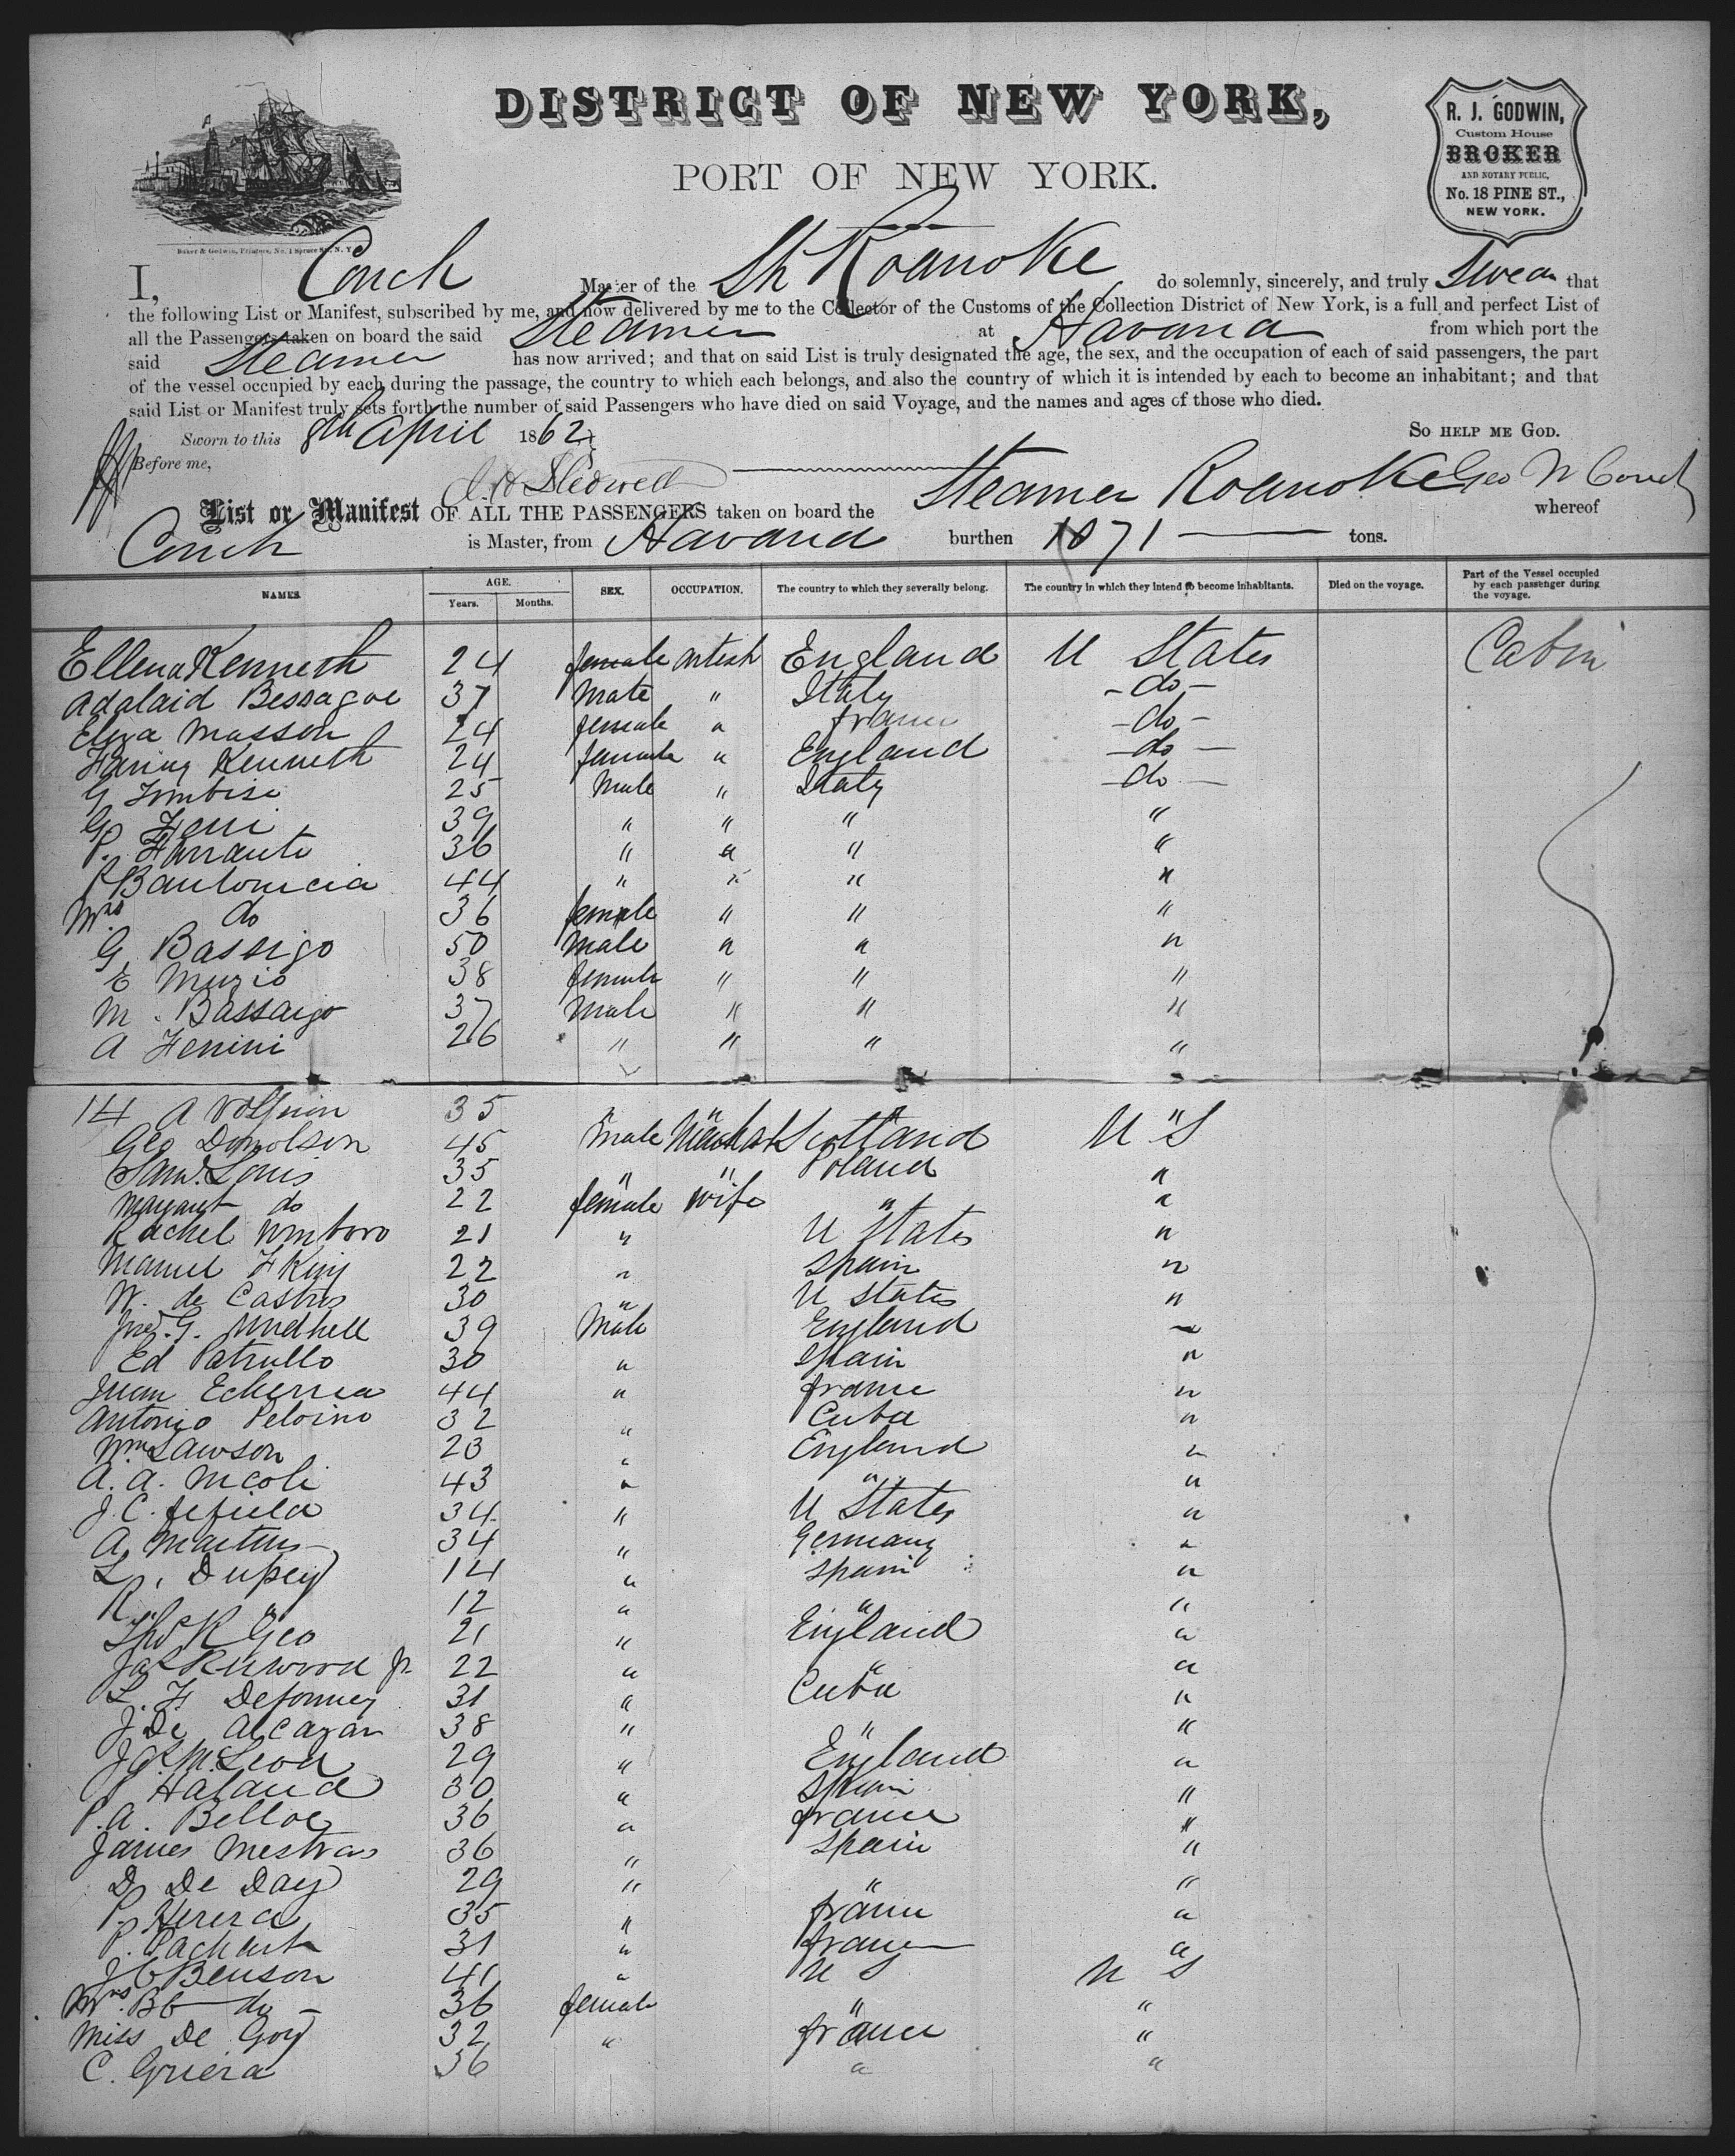 DISTRICT OF NEW YORK,
PORT OF NEW YORK.
R. J. GODWIN,
Custom House
BROKER
AND NOTARY PUBLIC,
No. 18 PINE ST.,
NEW YORK.
Baker & Godwin, Printers, No. 1 Spruce St., N. Y.
I, Couch Master of the Sh Roanoke do solemnly, sincerely, and truly Swear that
the following List or Manifest, subscribed by me, and now delivered by me to the Collector of the Customs of the Collection District of New York, is a full and perfect List of
all the Passengers taken on board the said Steamer at Havana from which port the
said Steamer has now arrived; and that on said List is truly designated the age, the sex, and the occupation of each of said passengers, the part
of the vessel occupied by each during the passage, the country to which each belongs, and also the country of which it is intended by each to become an inhabitant; and that
said List or Manifest truly sets forth the number of said Passengers who have died on said Voyage, and the names and ages of those who died.
Sworn to this 8th April 1862 SO HELP ME GOD.
Before me,
Geo W Couch
List or Manifest OF ALL THE PASSENGERS taken on board the Steamer Roanoke whereof
Couch is Master, from Havana burthen 1071 tons.
NAMES. AGE. Years. Months. SEX. OCCUPATION. The country to which they severally belong. The country in which they intend to become inhabitants. Died on the voyage. Part of the Vessel occupied by each passenger during the voyage.
Ellena Kenneth 24 female artist England U States Cabin
Adalaid Bessagoe 37 Male " Italy -do-
Eliza Masson 24 female " france -do-
Kenneth 24 female " England -do-
G 25 Male " Italy -do-
G 39 " " " "
P. Farranti 36 " " " "
44 " " " "
Mrs do 36 female " " "
G. Bassigo 50 Male " " "
E Muzio 38 female " " "
M. Bassaigo 37 Male " " "
A Fenini 26 " " " "
14 A 35 " " " "
Geo 45 Male Scotland U S
Saml. Louis 35 " " Poland "
Margaret do 22 female wife " "
Rachel 21 " U States "
Manuel F King 22 " Spain "
W. de Castro 30 " U States "
39 Male England "
Ed Patrullo 30 " Spain "
Juan Echerria 44 " france "
Antonio 32 " Cuba "
Wm Lawson 23 " England "
A. A. Nicoli 43 " " "
J. C. 34 " U States "
A. Martins 34 " Germany "
L. Dupey 14 " Spain "
R. " 12 " " "
Geo 21 " England "
Jas Jr. 22 " " "
L. F 31 " Cuba "
J. De Alcazar 38 " " "
Jas McLeod 29 " England "
P Haland 30 " Spain "
P. A. Belloc 36 " france "
James Mestras 36 " Spain "
D. De Day 29 " " "
P. Herera 35 " france "
P. 31 " france "
J C Benson 41 " U S U S
Mrs. do - 36 female " "
Miss De Goy 32 " france "
C. Griera 36 " "